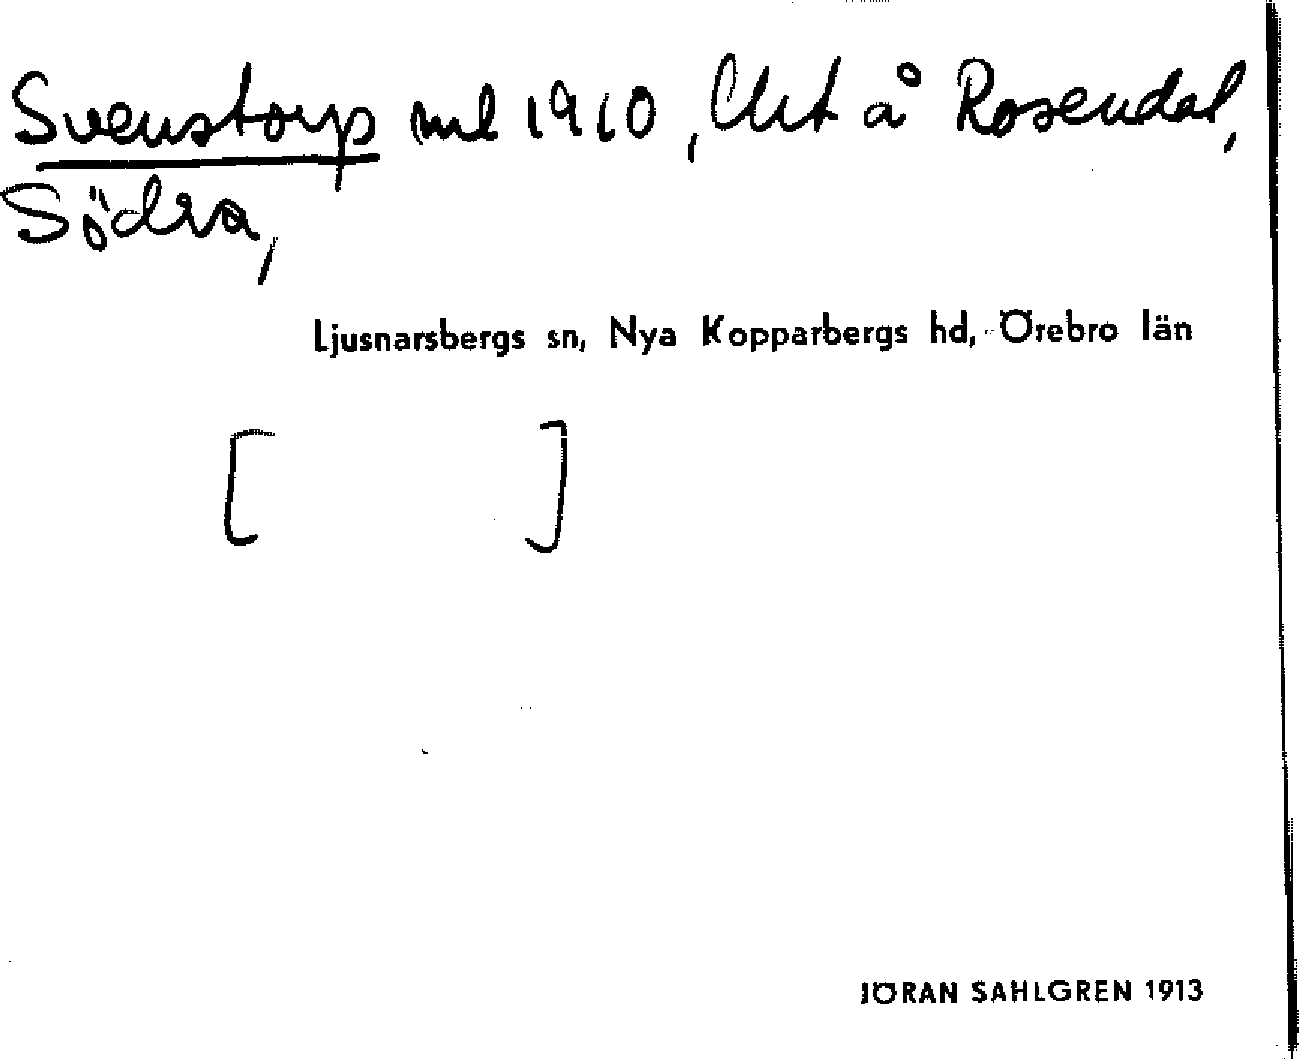 Svenstorp ml 1910, Urt å Rosendal,
Södra,
Ljusnarsbergs sn, Nya Kopparbergs hd, Örebro län
[ ]
JÖRAN SAHLGREN 1913